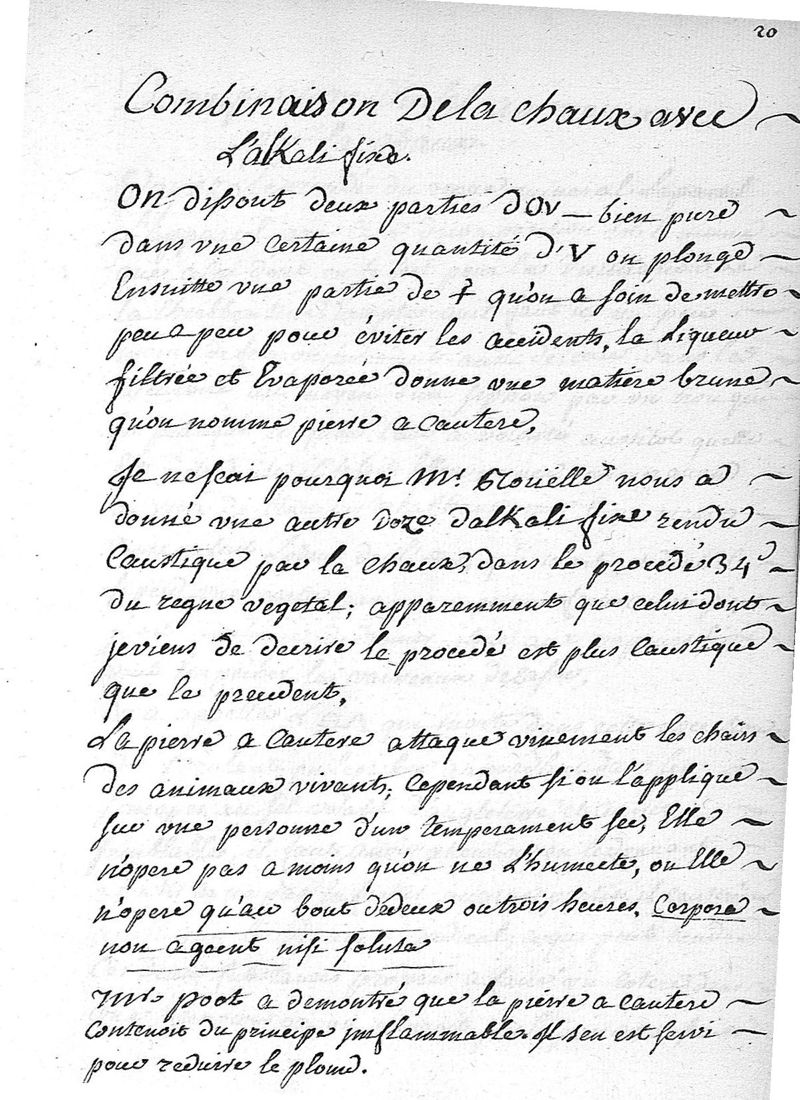 20
Combinaison De la chaux avec
L'alKali fixe.
On dissout deux parties d'OV bien pure
dans une certaine quantité d'V on plonge
Ensuitte une partie de qu'on a soin de mettre
peu a peu pour éviter les accidents, la Liqueur
filtrée et Evaporée donne une matiere brune
qu'on nomme pierre a Cautere,
Je ne scai pourquoi Mr. Roüelle nous a
donné une autre doze d'alKali fixe rendu
Caustique par la Chaux, dans le procedé 34e
du regne vegetal; apparemment que celui dont
je viens de decrire le procedé est plus Caustique
que le precedent,
La pierre a Cautere attaque vivement les chairs
des animaux vivant; Cependant si on l'applique
sur une personne d'un temperament sec, Elle
n'opere pas a moins qu'on ne L'humecte, ou Elle
n'opere qu'au bout de deux ou trois heures, Corpora
non agunt nisi soluta
Mr. poot a demontré que la pierre a Cautere
Contenoit du principe imflammable. Il s'en est servi
pour reduire le plomb.